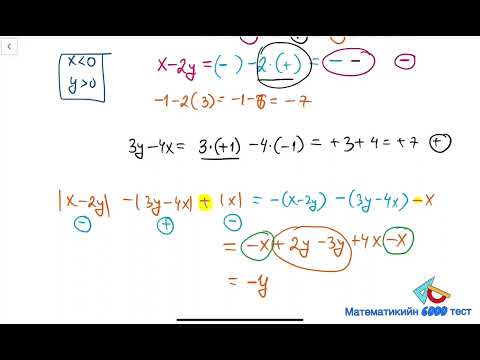 x<0
y>0
x-2y = (-) - 2·(+) = - - (-)
-1-2(3) = -1-6 = -7
3y-4x = 3·(+1) - 4·(-1) = +3+4 = +7 (+)
|x-2y| - |3y-4x| + |x| = -(x-2y) - (3y-4x) - x
(-) (+) (-)
= -x + 2y - 3y + 4x - x
= -y
Математикийн 6000 тест